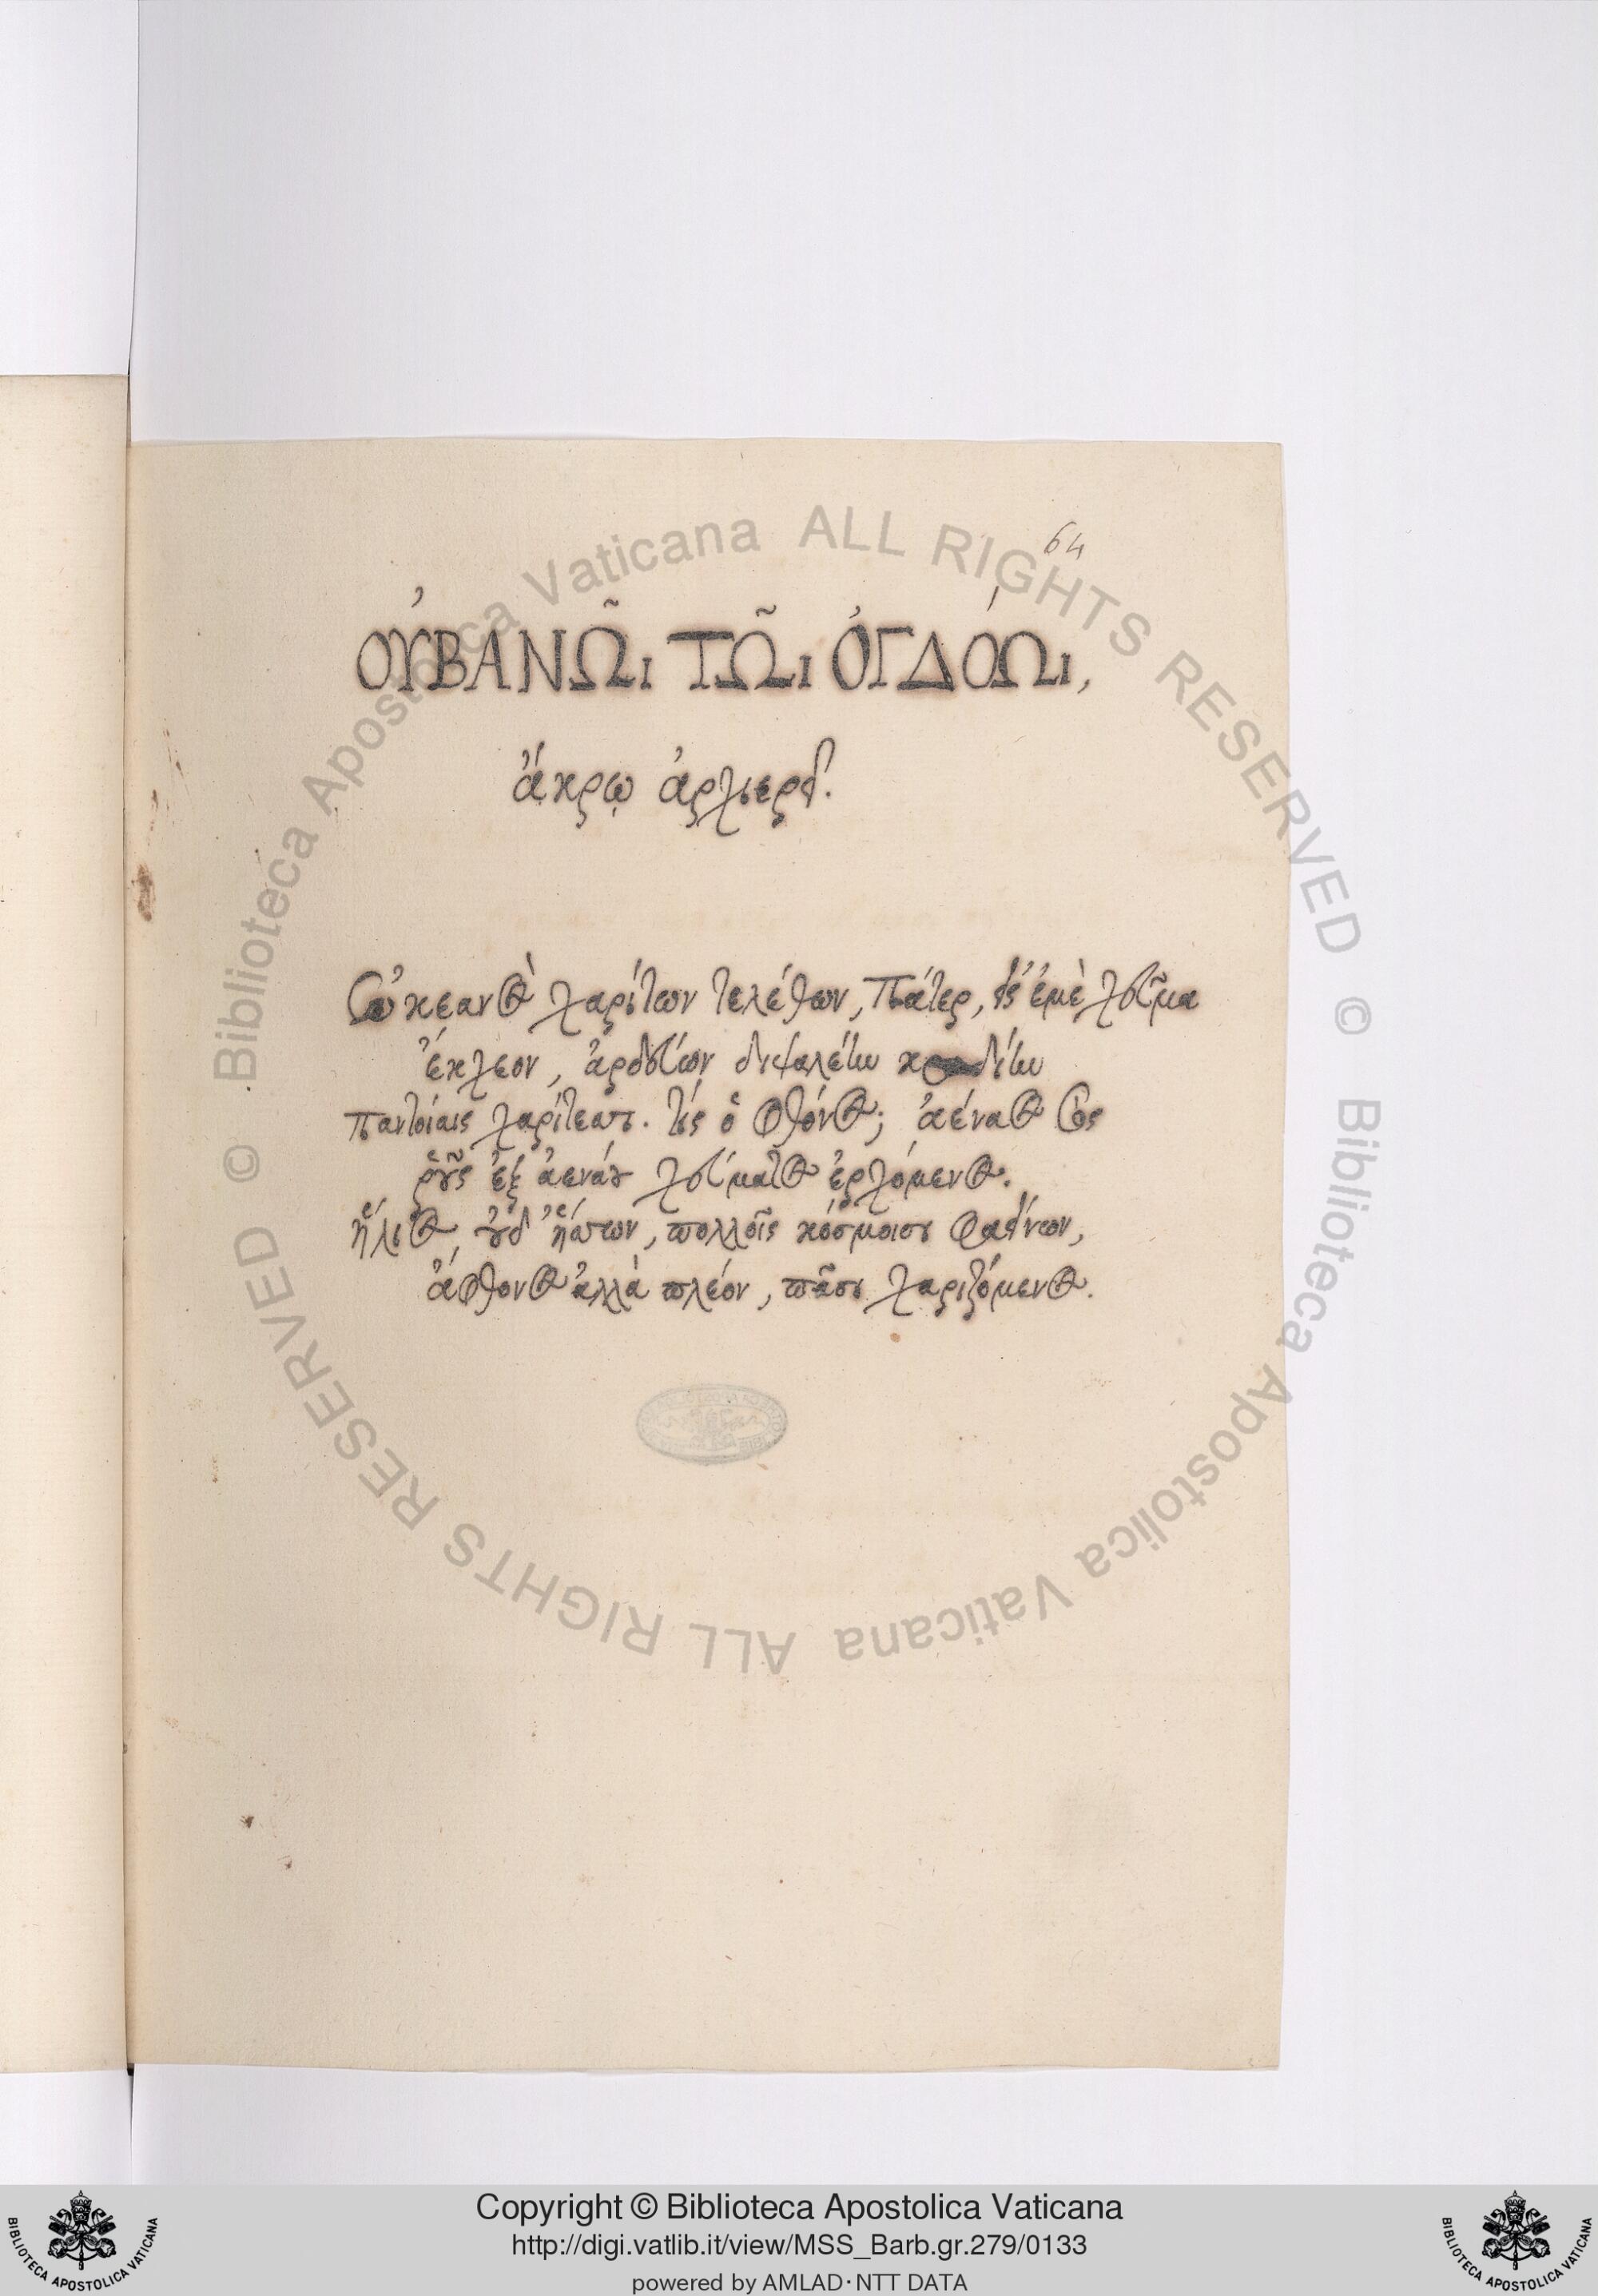 64
ΟὙΒΑΝΩ͂Ι ΤΩ͂Ι ὈΓΔΌΩΙ,
ἄκρῳ ἀρχιερεῖ.
Ὠκεανὸς χαρίτων τελέθων, Πάτερ, εἰς ἐμὲ χεῦμα
ἔκχεον, ἀρδεύων διψαλέην
παντοίαις χαρίτεσσι. τίς ὁ φθόνος; ἀέναος ὣς
ῥοῦς ἐξ ἀενάου χεύματος ἐρχόμενος.
ἥλιος, οὐδ' ἧττον, πολλοῖς κόσμοισι φαείνων,
ἄφθονος ἀλλὰ πλέον, πᾶσι χαριζόμενος.
© Biblioteca Apostolica Vaticana ALL RIGHTS RESERVED
© Biblioteca Apostolica Vaticana ALL RIGHTS RESERVED
Copyright © Biblioteca Apostolica Vaticana
http://digi.vatlib.it/view/MSS_Barb.gr.279/0133
powered by AMLAD·NTT DATA
BIBLIOTECA APOSTOLICA VATICANA
BIBLIOTECA APOSTOLICA VATICANA